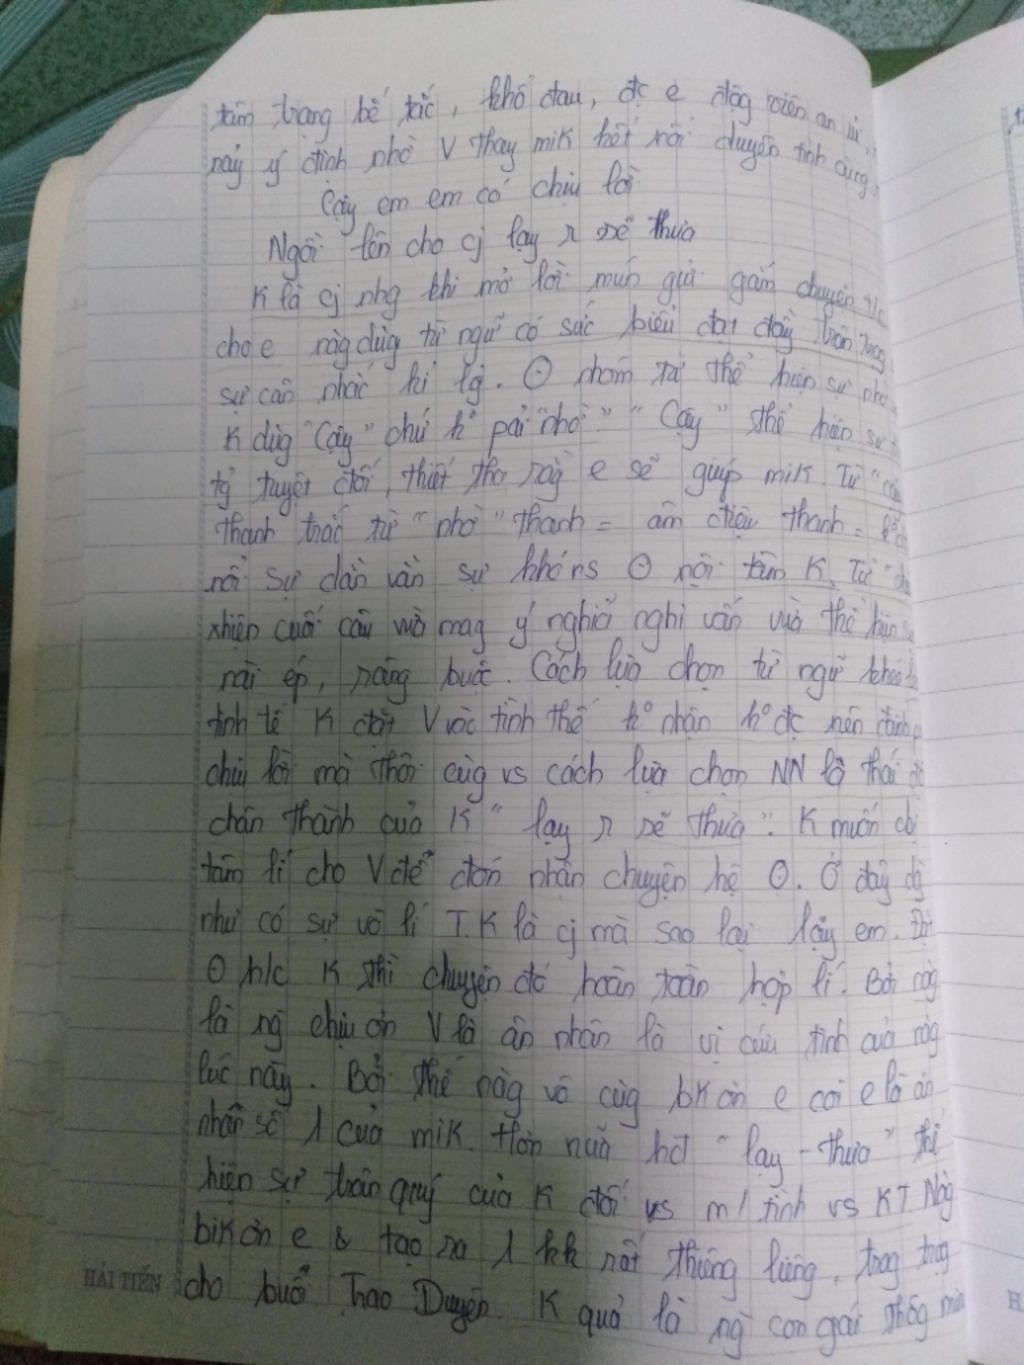 tâm trạng bế tắc, khổ đau, đc e động viên an ủi
nảy ý định nhờ V thay mik kết nối duyên tình cùng
Cậy em em có chịu lời
Ngồi lên cho cj lạy r sẽ thưa
K là cj nhg khi mở lời muốn gửi gắm chuyện
cho e nàg dùg từ ngữ có sức biểu đạt đầy trân trọng
sự cân nhắc kĩ lg. Θ nhóm từ thể hiện sự nhờ
K dùg "Cậy" chứ k° pải "nhờ" "Cậy" thể hiện sự
tg tuyệt đối, thiết tha rằg e sẽ giúp mik. Từ
thanh trắc từ "nhờ" thanh = âm điệu thanh =
nổi sự dằn vặn sự khó ns Θ nội tâm K. Từ
nhiện cuối câu vừa mag ý nghĩa nghi vấn vừa thể hiện
nài ép, ràng buộc. Cách lựa chọn từ ngữ khéo
tinh tế K đặt V vào tình thế k° nhận k° đc nên đành
chịu lời mà thôi cùg vs cách lựa chọn NN là thái độ
chân thành của K "lạy r sẽ thưa". K muốn
tâm lí cho V để đón nhận chuyện hệ Θ. Ở đây
như có sự vô lí T.K là cj mà sao lại lạy em. Đặt
Θ h/c K thì chuyện đó hoàn toàn hợp lí. Bởi nàg
là ng chịu ơn V là ân nhân là vị cứu tinh của nàg
lúc này. Bởi thế nàg vô cùg bk ơn e coi e là ân
nhân số 1 của mik. Hơn nữa hđ "lạy - thưa" thể
hiện sự trân quý của K đối vs m/ tình vs KT. Nàg
bik ơn e & tạo ra 1 kk rất thiêng liêng, trag trọg
cho buổi Trao Duyên. K quả là ng con gái thôg minh
HẢI TIẾN